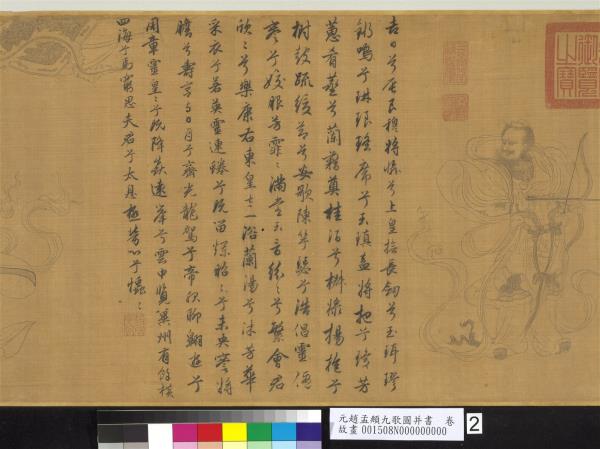 吉日兮辰良穆將愉兮上皇撫長劍兮玉珥璆
鏘鳴兮琳琅瑤席兮玉瑱盍將把兮瓊芳
蕙肴蒸兮蘭藉奠桂酒兮椒漿揚枹兮
拊鼓疏緩節兮安歌陳竽瑟兮浩倡靈偃
蹇兮姣服芳霏〻滿堂五音紛〻兮繁會君
欣〻兮樂康右東皇太一浴蘭湯兮沐芳華
采衣兮若英靈連蜷兮既留爛昭〻兮未央蹇將
憺兮壽宮與日月兮齊光龍駕兮帝服聊翱遊兮
周章靈皇〻兮既降猋遠舉兮雲中覽冀州有餘橫
四海兮焉窮思夫君兮太息極勞心兮忡〻
御覽之寶
元趙孟頫九歌圖并書 卷
故畫 001508N000000000
2